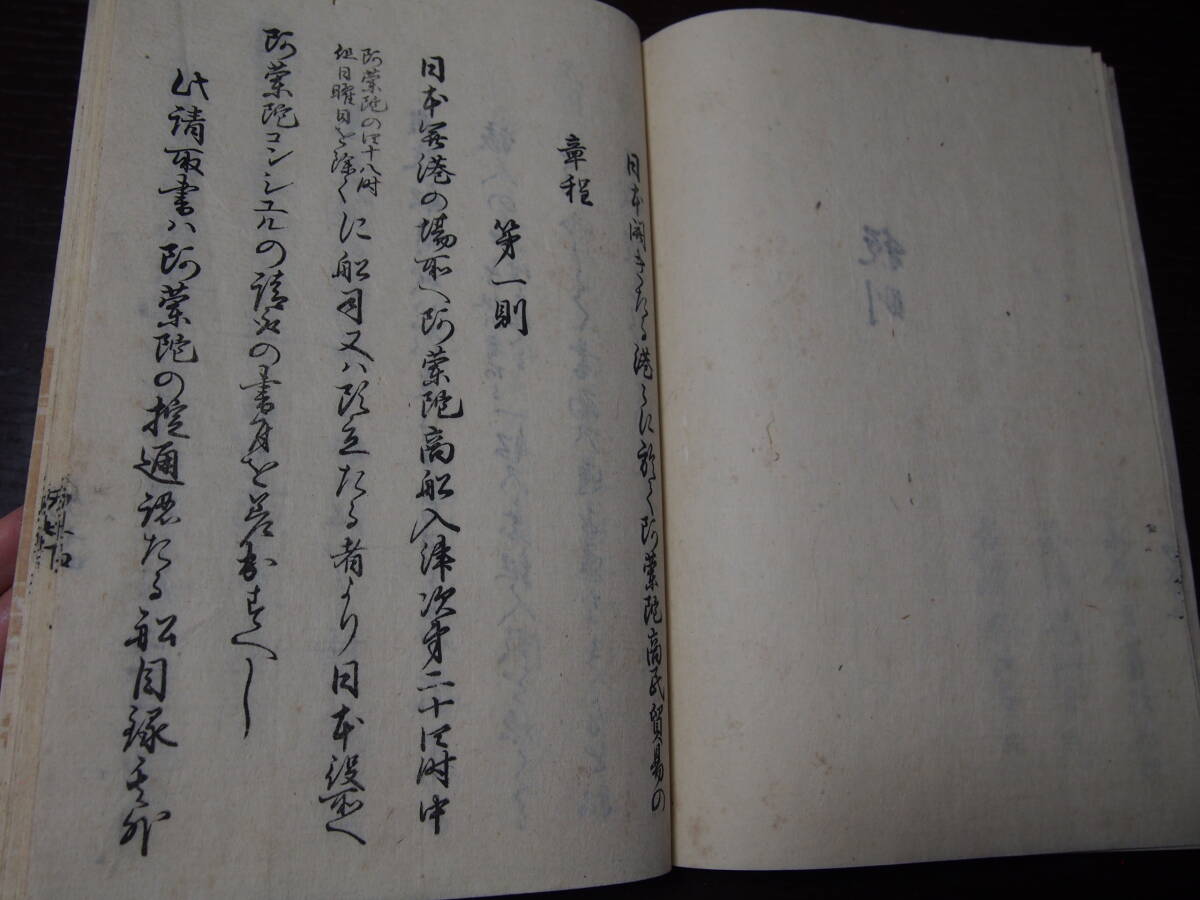 日本開きたる港々に於て阿蘭陀商民貿易の
章程
第一則
日本開港の場所へ阿蘭陀商船入津次第二十四時中
阿蘭陀の四十八時
但日曜日を除く
に船司又ハ頭立たる者より日本役所へ
阿蘭陀コンシユルの請取の書付を差出すへし
此請取書ハ阿蘭陀の掟通認たる船目録其外
税則